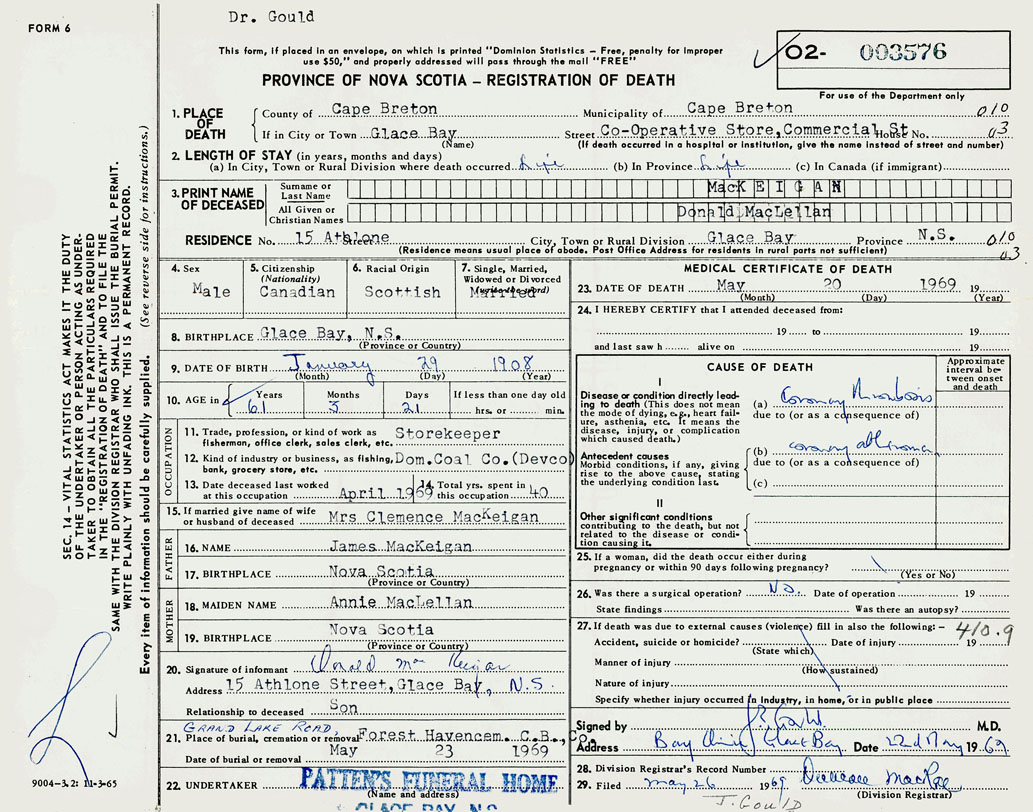 Dr. Gould
FORM 6
This form, if placed in an envelope, on which is printed "Dominion Statistics – Free, penalty for improper
use $50," and properly addressed will pass through the mail "FREE"
PROVINCE OF NOVA SCOTIA – REGISTRATION OF DEATH
02- 003576
For use of the Department only
SEC. 14 – VITAL STATISTICS ACT MAKES IT THE DUTY
OF THE UNDERTAKER OR PERSON ACTING AS UNDER-
TAKER TO OBTAIN ALL THE PARTICULARS REQUIRED
IN THE "REGISTRATION OF DEATH" AND TO FILE THE
SAME WITH THE DIVISION REGISTRAR WHO SHALL ISSUE THE BURIAL PERMIT.
WRITE PLAINLY WITH UNFADING INK. THIS IS A PERMANENT RECORD.
Every item of information should be carefully supplied. (See reverse side for instructions.)
1. PLACE OF DEATH
County of Cape Breton Municipality of Cape Breton 010
If in City or Town Glace Bay Street Co-Operative Store, Commercial St House No. 03
(Name) (If death occurred in a hospital or institution, give the name instead of street and number)
2. LENGTH OF STAY (in years, months and days)
(a) In City, Town or Rural Division where death occurred Life (b) In Province Life (c) In Canada (if immigrant)
3. PRINT NAME OF DECEASED
Surname or Last Name MacKEIGAN
All Given or Christian Names Donald MacLellan
RESIDENCE No. 15 Athlone Street City, Town or Rural Division Glace Bay Province N.S. 010
(Residence means usual place of abode. Post Office Address for residents in rural parts not sufficient) 03
4. Sex Male
5. Citizenship (Nationality) Canadian
6. Racial Origin Scottish
7. Single, Married, Widowed or Divorced (write the word) Married
8. BIRTHPLACE Glace Bay, N.S.
(Province or Country)
9. DATE OF BIRTH January 29 1908
(Month) (Day) (Year)
10. AGE in Years Months Days If less than one day old
61 3 21 hrs. or min.
OCCUPATION
11. Trade, profession, or kind of work as fisherman, office clerk, sales clerk, etc. Storekeeper
12. Kind of industry or business, as fishing, bank, grocery store, etc. Dom.Coal Co.(Devco)
13. Date deceased last worked at this occupation April 1969
14. Total yrs. spent in this occupation 40
15. If married give name of wife or husband of deceased Mrs Clemence MacKeigan
FATHER
16. NAME James MacKeigan
17. BIRTHPLACE Nova Scotia
(Province or Country)
MOTHER
18. MAIDEN NAME Annie MacLellan
19. BIRTHPLACE Nova Scotia
(Province or Country)
20. Signature of informant Donald Mac Keigan
Address 15 Athlone Street, Glace Bay, N.S.
Relationship to deceased Son
GRAND LAKE ROAD,
21. Place of burial, cremation or removal Forest Havencem. C.B., Co.
Date of burial or removal May 23 1969
22. UNDERTAKER PATTEN'S FUNERAL HOME
(Name and address)
GLACE BAY, N.S.
9004-3.2: 11-3-65
MEDICAL CERTIFICATE OF DEATH
23. DATE OF DEATH May 20 1969 19
(Month) (Day) (Year)
24. I HEREBY CERTIFY that I attended deceased from:
19 to 19
and last saw h alive on 19
CAUSE OF DEATH
Approximate interval between onset and death
I
Disease or condition directly leading to death (This does not mean the mode of dying, e.g., heart failure, asthenia, etc. It means the disease, injury, or complication which caused death.)
(a) Coronary Thrombosis
due to (or as a consequence of)
Antecedent causes
Morbid conditions, if any, giving rise to the above cause, stating the underlying condition last.
(b) coronary atheroma
due to (or as a consequence of)
(c)
II
Other significant conditions contributing to the death, but not related to the disease or condition causing it.
25. If a woman, did the death occur either during
pregnancy or within 90 days following pregnancy?
(Yes or No)
26. Was there a surgical operation? No. Date of operation 19
State findings Was there an autopsy?
27. If death was due to external causes (violence) fill in also the following: – 410.9
Accident, suicide or homicide? Date of injury 19
(State which)
Manner of injury
(How sustained)
Nature of injury
Specify whether injury occurred in Industry, in home, or in public place
Signed by M.D.
Address Bay Clinic, Glace Bay Date 22d May 1969
28. Division Registrar's Record Number
29. Filed may 26 1969
(Division Registrar)
J. GOULD